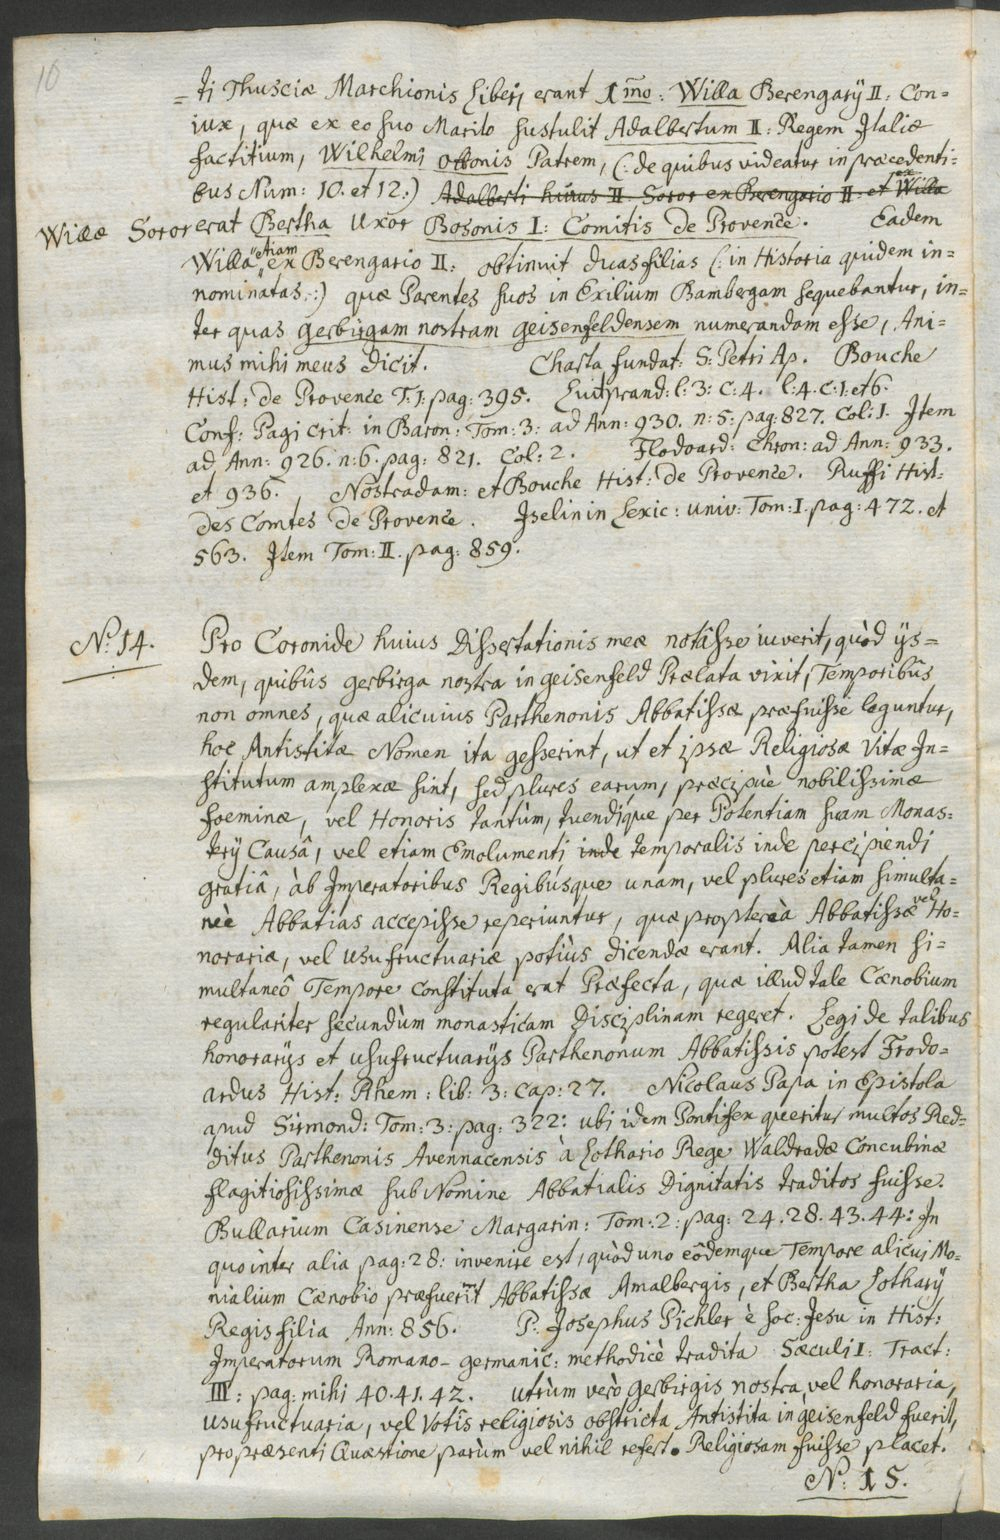 10
= ti Thusciæ Marchionis Liberi erant 1mo: Willa Berengarÿ II: Con=
iux, quæ ex eo suo Marito sustulit Adalbertum II: Regem Italiæ
factitium, Wilhelmi Ottonis Patrem, (: de quibus videatur in præcedenti=
bus Num: 10. et 12.:) Adalberti huius II. Soror ex Berengario II: et Willa
Willæ Soror erat Bertha Uxor Bosonis I: Comitis de Provence. Eadem
Willa etiam ex Berengario II: obtinuit duas filias (: in Historia quidem in=
nominatas,:) quæ Parentes suos in Exilium Bambergam sequebantur, in=
ter quas gerbirgam nostram geisenfeldensem numerandam esse, Ani=
mus mihi meus dicit. Charta fundat: S: Petri Ap. Bouche
Hist: de Provence T: I: pag: 395. Luitprand: l: 3: c: 4. l: 4. c: 1. et 6.
Conf: Pagi Crit: in Baron: Tom: 3: ad Ann: 930. n: 5: pag: 827. Col: 1. Item
ad Ann: 926. n: 6. pag: 821. Col: 2. Flodoard: Chron: ad Ann: 933.
et 936. Nostradam: et Bouche Hist: de Provence. Ruffi Hist:
des Comtes de Provence. Iselin in Lexic: univ: Tom: I. pag: 472. et
563. Item Tom: II. pag: 859.
No. 14. Pro Coronide huius Dissertationis meæ notâsse iuverit, quòd ÿs=
dem, quibus gerbirga nostra in geisenfeld Prælata vixit, Temporibus
non omnes, quæ alicuius Parthenonis Abbatissæ præfuisse leguntur,
hoc Antistitæ Nomen ita gesserint, ut et ipsæ Religiosæ Vitæ In=
stitutum amplexæ sint, sed plures earum, præcipuè nobilissimæ
foeminæ, vel Honoris tantùm, tuendíque per Potentiam suam Monas=
terÿ Causâ, vel etiam Emolumenti inde temporalis inde percipiendi
gratiâ, àb Imperatoribus Regibúsque unam, vel plures etiam simulta=
neè Abbatias accepisse reperiuntur, quæ propterèa Abbatissæ vel Ho=
norariæ, vel Usufructuariæ potiùs dicendæ erant. Alia tamen si=
multaneô Tempore constituta erat Præfecta, quæ illud tale Cænobium
regulariter secundùm monasticam Disciplinam regeret. Legi de talibus
honorarÿs et usufructuarÿs Parthenonum Abbatissis potest Frodo=
ardus Hist: Rhem: lib: 3: cap: 27. Nicolaus Papa in Epistola
apud Sirmond: Tom: 3: pag: 322: ubi idem Pontifex queritur multos Red=
ditus Parthenonis Avennacensis à Lothario Rege Waldradæ Concubinæ
flagitiosissimæ sub Nomine Abbatialis Dignitatis traditos fuisse.
Bullarium Casinense Margarin: Tom: 2: pag: 24. 28. 43. 44: In
quo inter alia pag: 28: invenire est, quòd uno eôdemque Tempore alicui Mo=
nialium Cænobio præfuerint Abbatissæ Amalbergis, et Bertha Lotharÿ
Regis filia Ann: 856. P. Josephus Pichler è Soc: Jesu in Hist:
Imperatorum Romano-germanic: methodicè tradita Sæculi I: Tract:
III: pag: mihi 40. 41. 42. utrùm verò gerbirgis nostra, vel honoraria,
usufructuaria, vel Votîs religiosis obstricta Antistita in geisenfeld fuerit,
pro præsenti Quæstione parùm vel nihil refert. Religiosam fuisse placet.
No: 15.